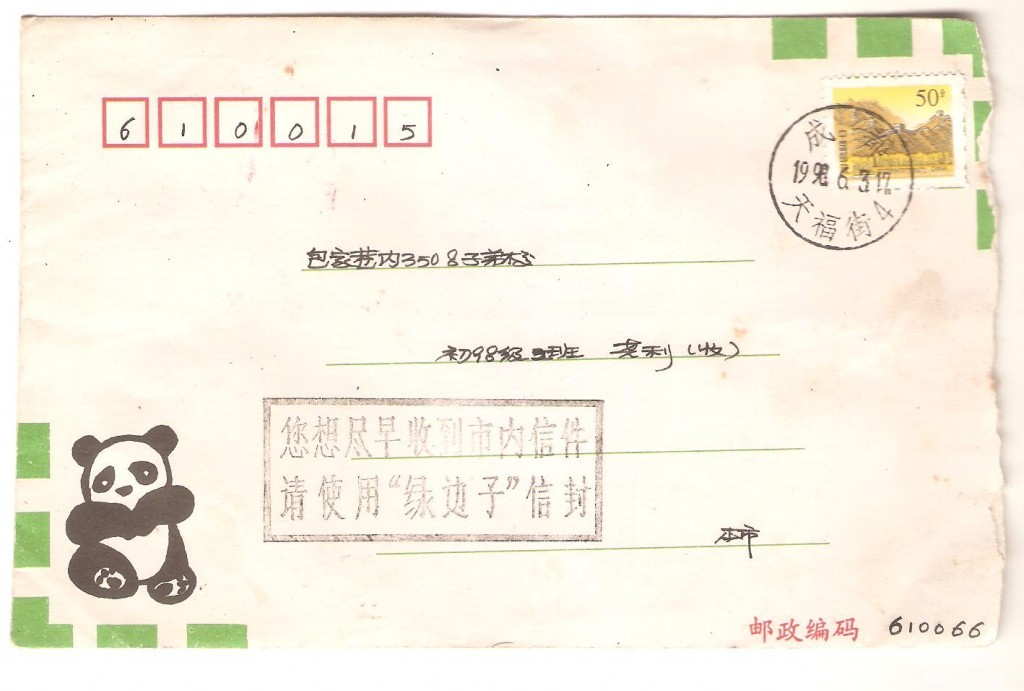 610015
50分
成都
1998.6.3.17
天福街4
包家巷内3508子弟校
初98级二班 吴利(收)
您想尽早收到市内信件
请使用“绿边子”信封
本市
邮政编码 610066